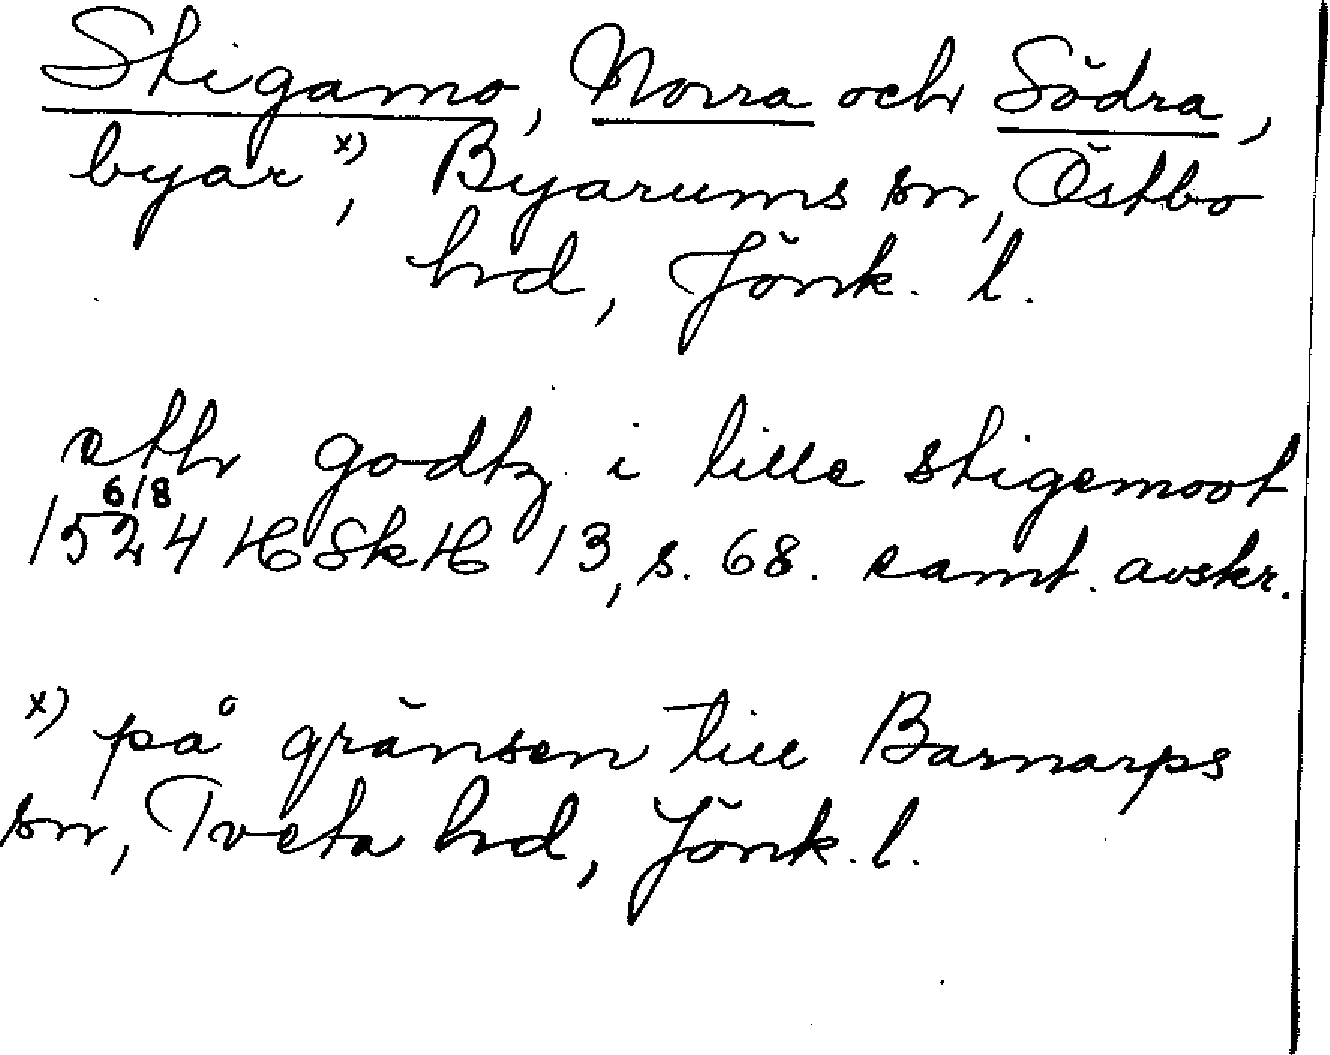 Stigamo, Norra och Södra,
byar x), Byarums sn, Östbo
hd, Jönk. l.
etth godtz i lille stigemoot
6/8
1524 HSkH 13, s. 68. samt. avskr.
x) på gränsen till Barnarps
sn, Tveta hd, Jönk. l.